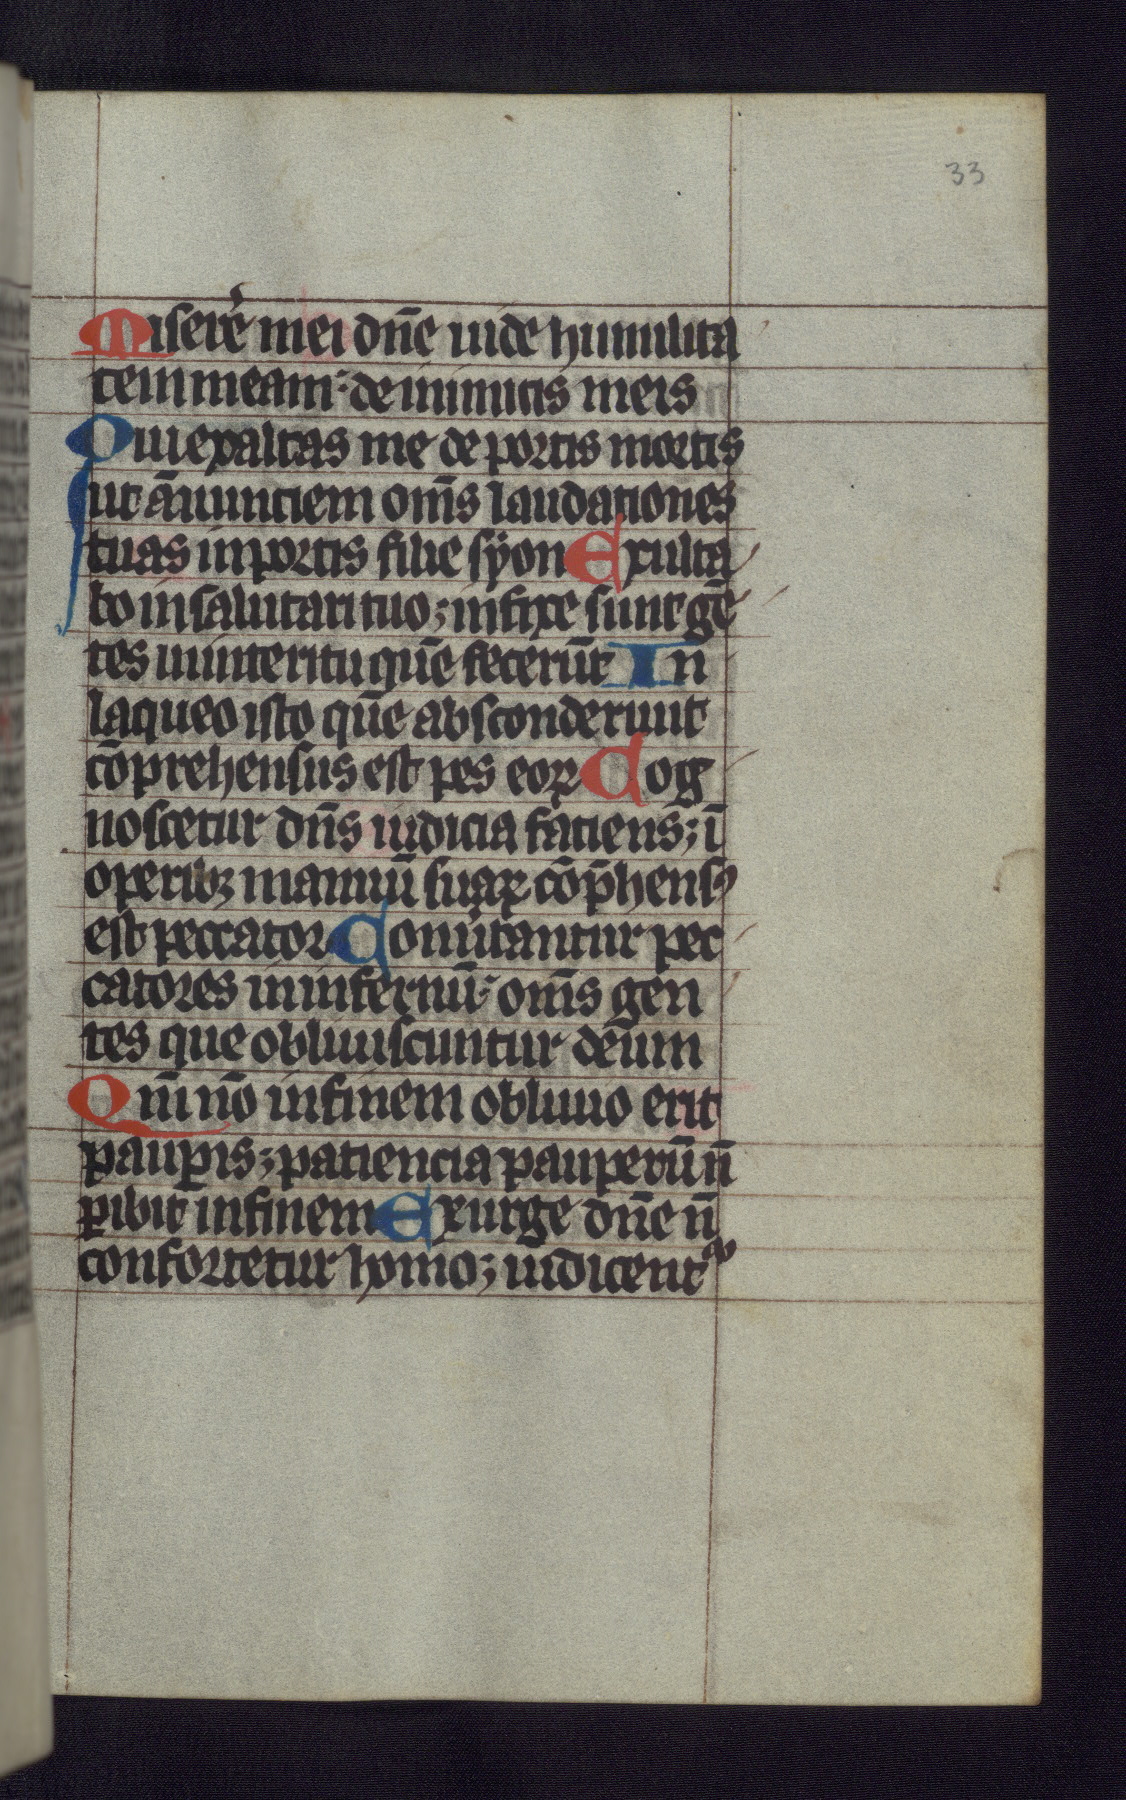 33
Misere͛ mei dn̄e uide humilita
tem meam: de inimicis meis
Qui exaltas me de portis mortis
ut ānunciem om̄s laudationes
tuas in portis filie syon Exulta
bo in salutari tuo; infixe sunt gē
tes in interitu quē fecerūt In
laqueo isto quē absconderunt
cōprehensus est pes eoꝝ Cog
noscetur dn̄s iudicia faciens; ī
operibꝫ manuū suaꝝ cōp̄hensꝰ
est peccator Conūtantur pec
catores in infernū: om̄s gen
tes que obliuiscuntur deum
Qm̄ nō in finem obliuio erit
pauꝑis; paciencia pauperū n̄
ꝑibit in finem Exurge dn̄e n̄
confortetur homo; iudicentᷣ